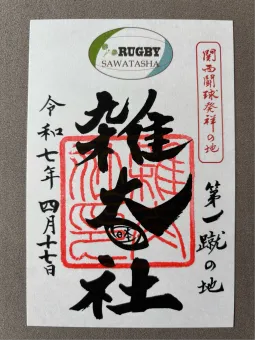 RUGBY
SAWATASHA
関西闘球発祥の地
第一蹴の地
雑太社
令和七年 四月十七日